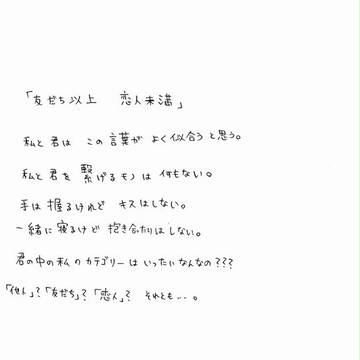 「友だち以上　恋人未満」
私と君は この言葉が よく似合う と思う。
私と君を 繋げるモノは 何もない。
手は 握るけれど キスはしない。
一緒に寝るけど 抱き合ったりは しない。
君の中の私の カテゴリーは いったいなんなの???
「他人」?「友だち」?「恋人」?　それとも…。